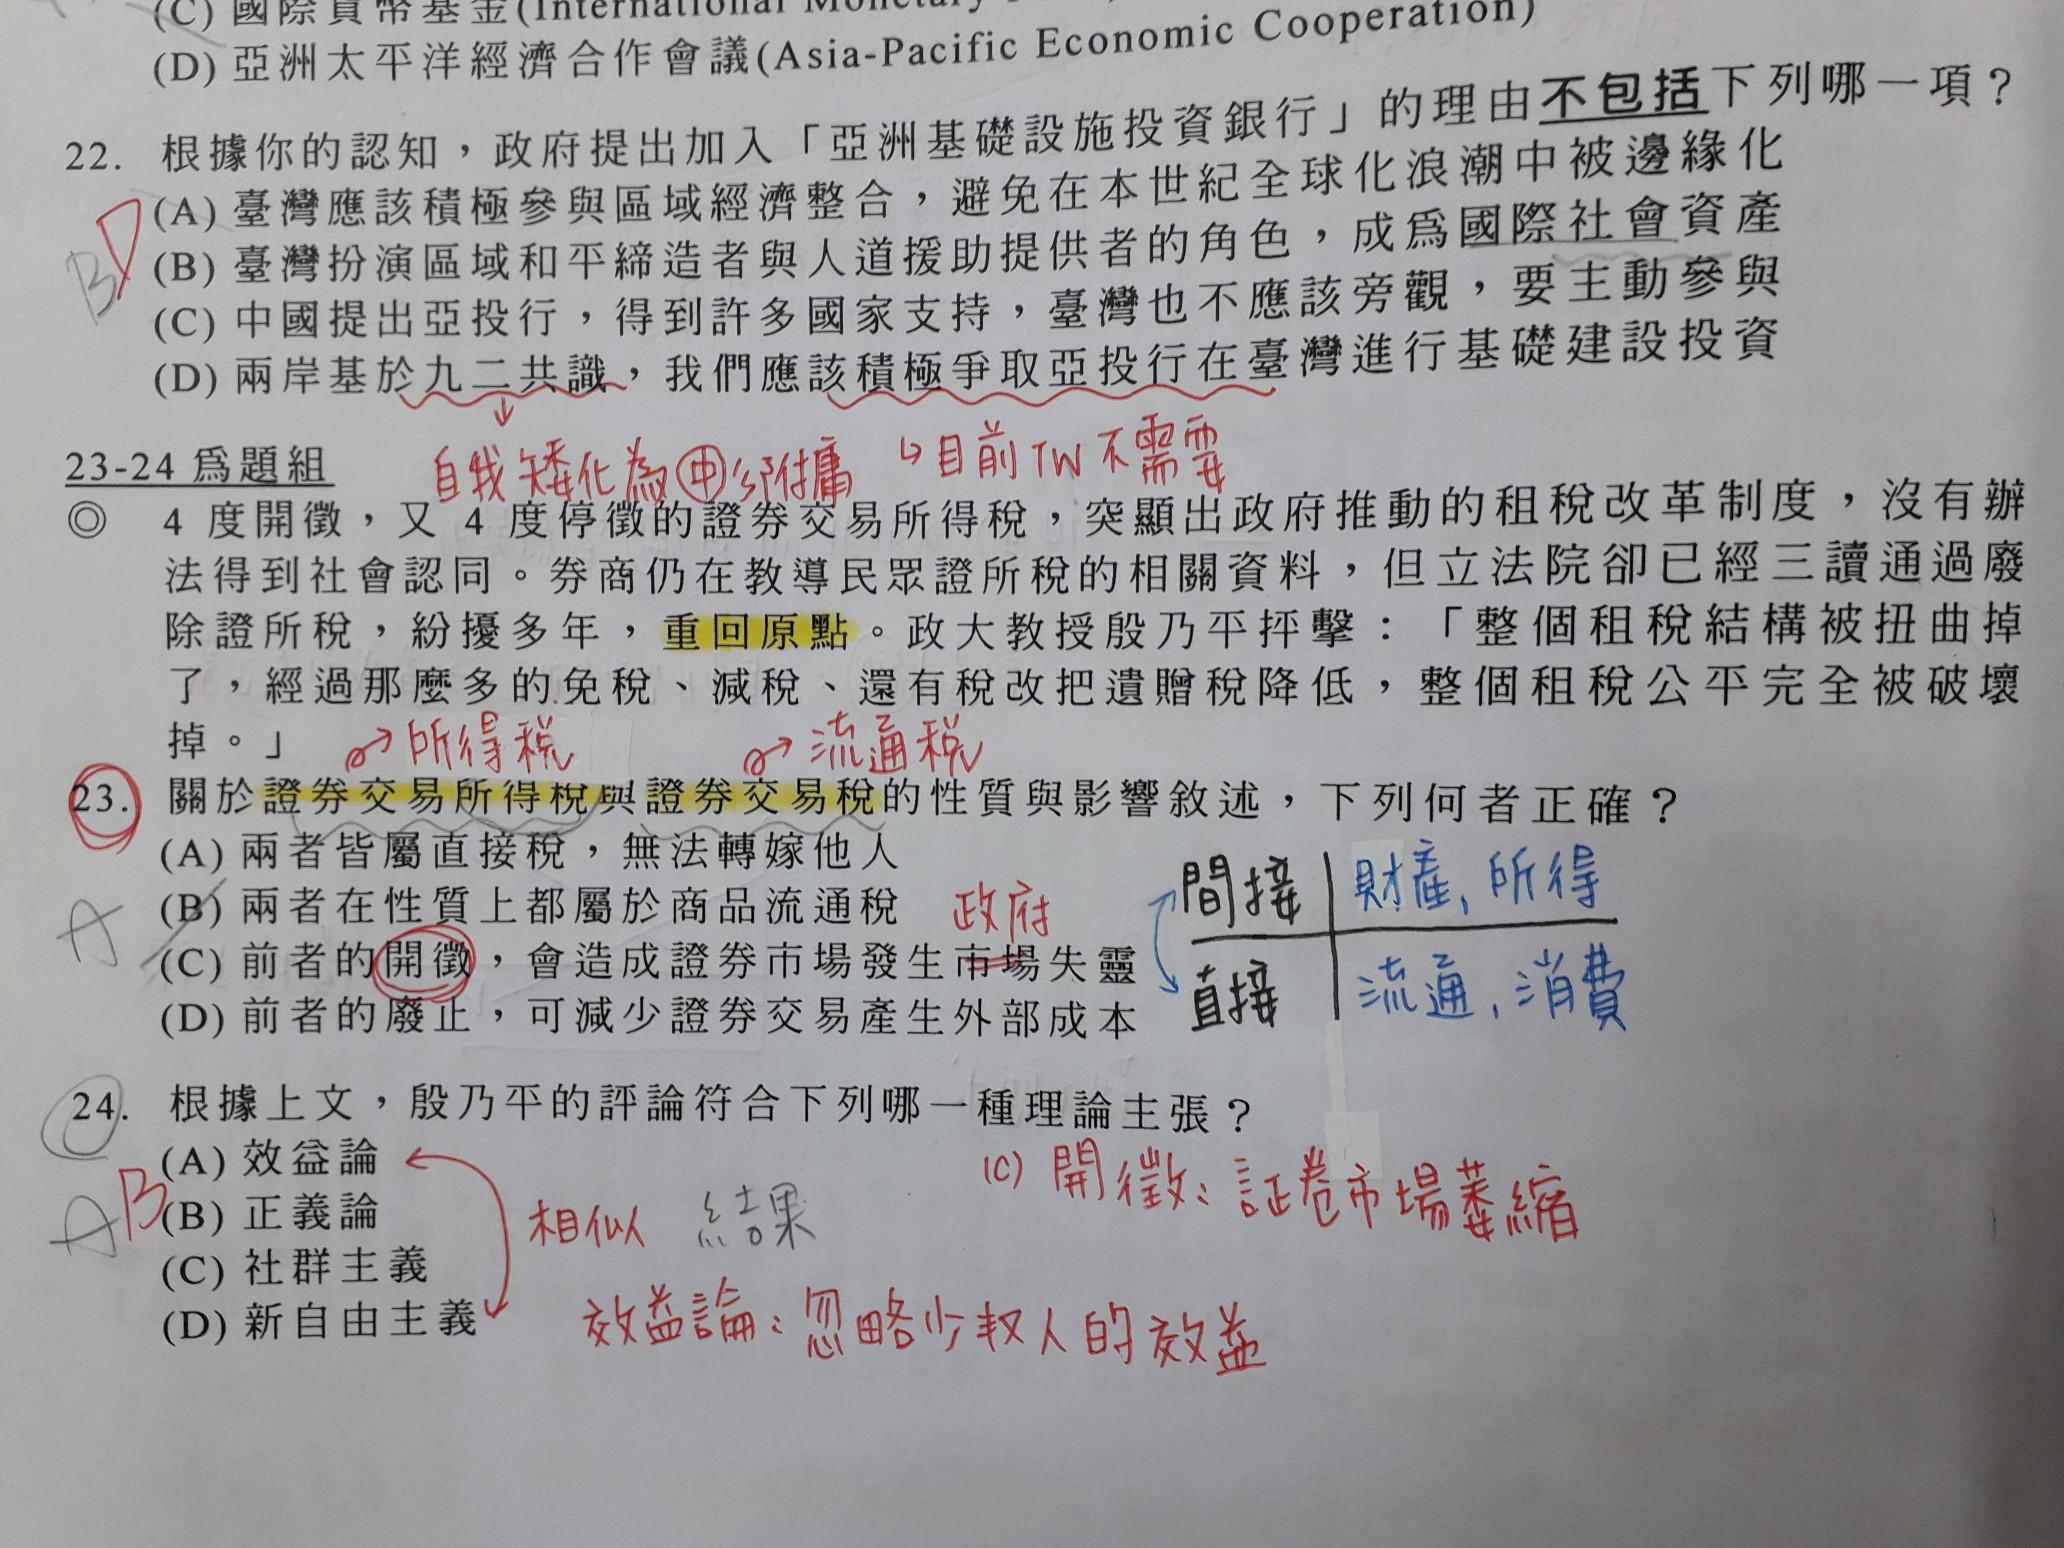 (C) 國際貨幣基金(International Monetary
(D) 亞洲太平洋經濟合作會議(Asia-Pacific Economic Cooperation)
22. 根據你的認知，政府提出加入「亞洲基礎設施投資銀行」的理由不包括下列哪一項？
(A) 臺灣應該積極參與區域經濟整合，避免在本世紀全球化浪潮中被邊緣化
(B) 臺灣扮演區域和平締造者與人道援助提供者的角色，成爲國際社會資產
(C) 中國提出亞投行，得到許多國家支持，臺灣也不應該旁觀，要主動參與
(D) 兩岸基於九二共識，我們應該積極爭取亞投行在臺灣進行基礎建設投資
B
D
自我矮化為中的附庸
↳目前TW不需要
23-24 爲題組
◎ 4 度開徵，又 4 度停徵的證券交易所得稅，突顯出政府推動的租稅改革制度，沒有辦
法得到社會認同。券商仍在教導民眾證所稅的相關資料，但立法院卻已經三讀通過廢
除證所稅，紛擾多年，重回原點。政大教授殷乃平抨擊：「整個租稅結構被扭曲掉
了，經過那麼多的免稅、減稅、還有稅改把遺贈稅降低，整個租稅公平完全被破壞
掉。」
→所得稅
→流通稅
23. 關於證券交易所得稅與證券交易稅的性質與影響敘述，下列何者正確？
(A) 兩者皆屬直接稅，無法轉嫁他人
(B) 兩者在性質上都屬於商品流通稅
(C) 前者的開徵，會造成證券市場發生市場失靈
(D) 前者的廢止，可減少證券交易產生外部成本
A
政府
間接 財產, 所得
直接 流通, 消費
24. 根據上文，殷乃平的評論符合下列哪一種理論主張？
(A) 效益論
(B) 正義論
(C) 社群主義
(D) 新自由主義
A
B
相似 結果
(C) 開徵: 証卷市場萎縮
效益論: 忽略少数人的效益